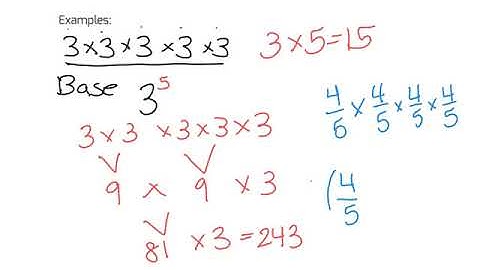 Examples:
3 × 3 × 3 × 3 × 3
3 × 5 = 15
Base 3⁵
3 × 3 × 3 × 3 × 3
9 × 9 × 3
81 × 3 = 243
4/5 × 4/5 × 4/5 × 4/5
(4/5